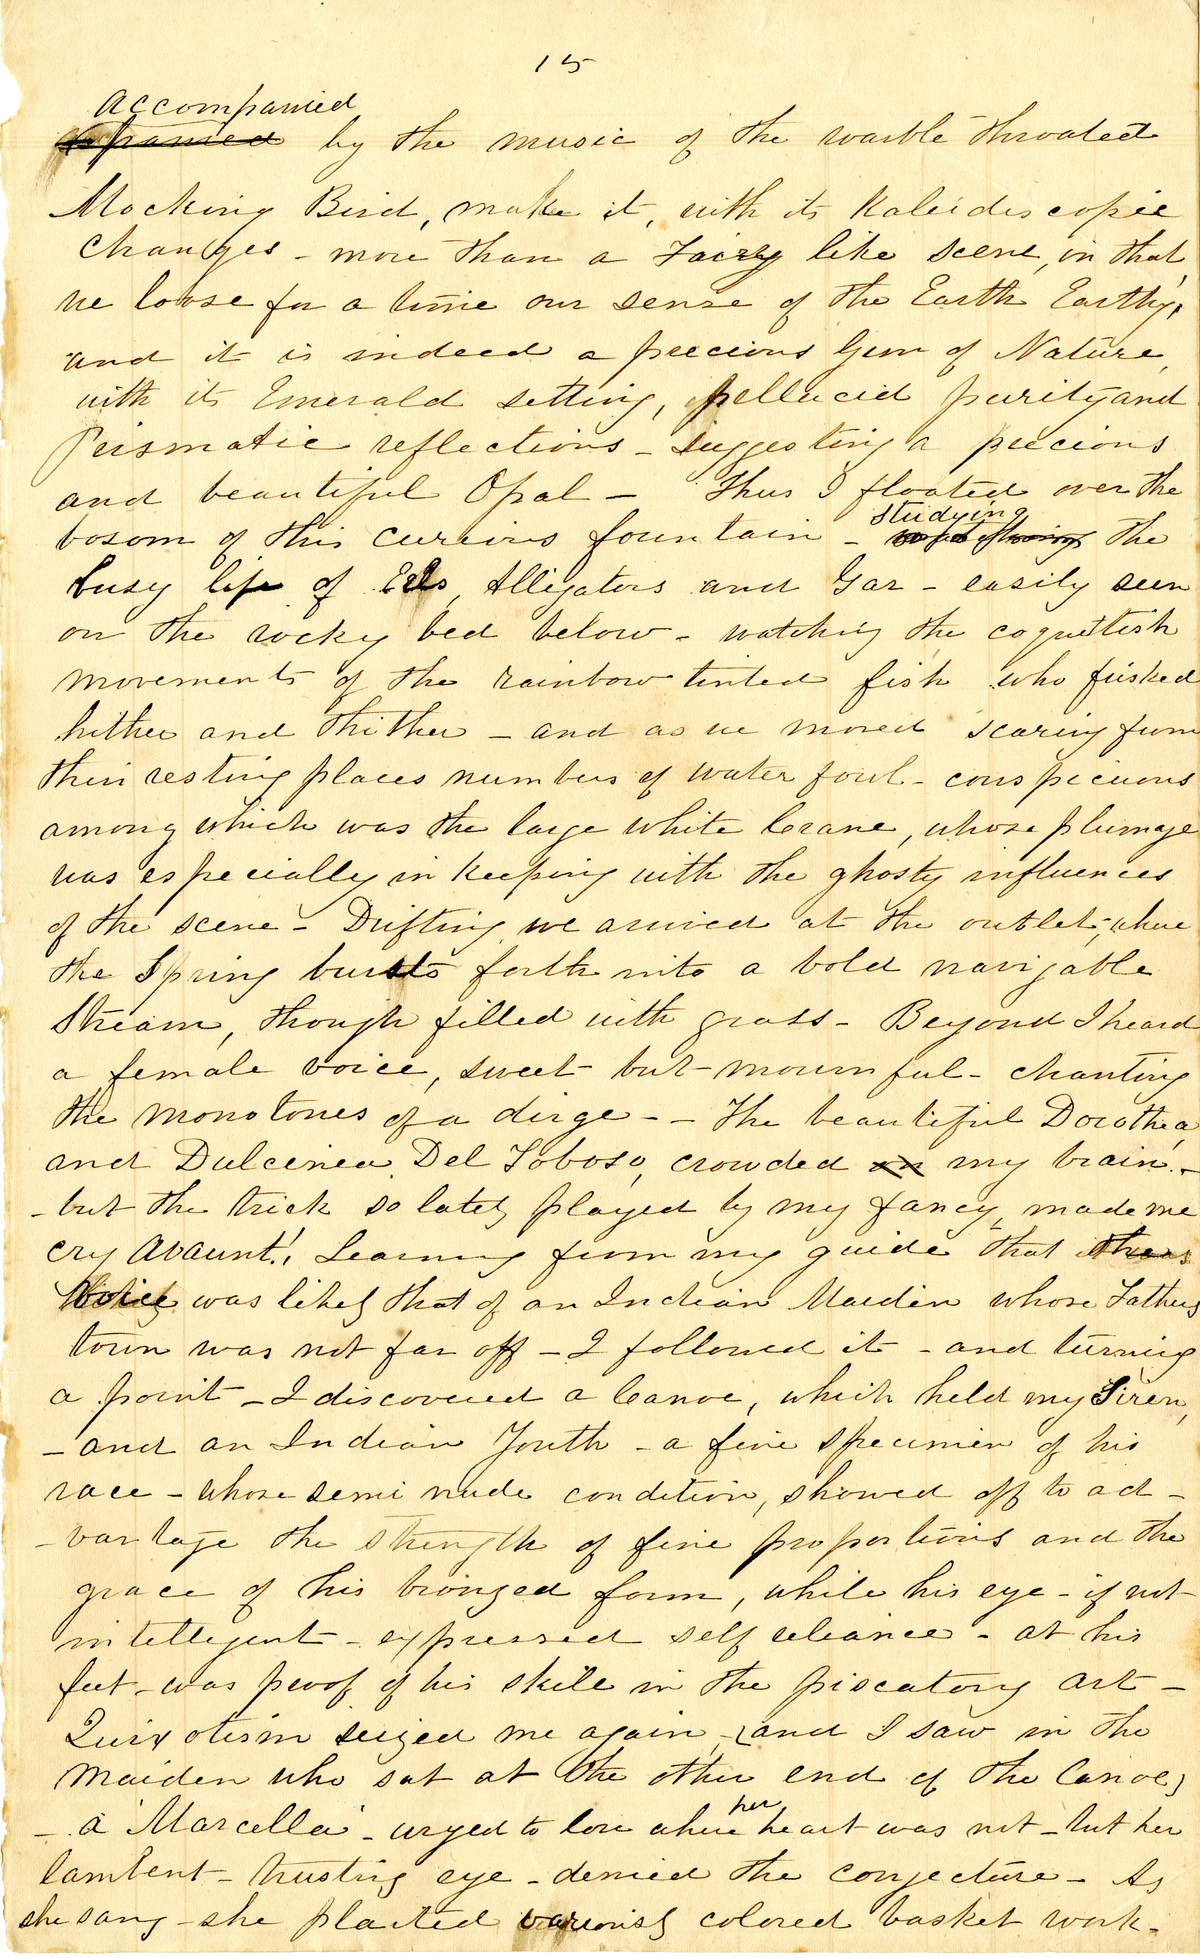 15
accompanied
by the music of the warble throated
Mocking Bird, make it, with its Kaleidiscopic
changes - more than a Fairy like scene, in that
we loose for a time our sense of the Earth Earthy,
and it is indeed a precious Gem of Nature,
with its Emerald setting, pellucid purity and
Prismatic reflections - suggesting a precious
and beautiful Opal - Thus I floated over the
studying
bosom of this curious fountain - the
busy life of Eels, Alligators and Gar - easily seen
on the rocky bed below - watching the coquettish
movements of the rainbow tinted fish who frisked
hither and thither - and as we moved scaring from
their resting places numbers of water fowl - conspicuous
among which was the large white Crane, whose plumage
was especially in keeping with the ghostly influences
of the scene - Drifting we arrived at the outlet, where
the Spring bursts forth into a bold navigable
Stream, though filled with grass - Beyond I heard
a female voice, sweet but mournful - chanting
the monotones of a dirge - - The beautiful Dorothea,
and Dulcinea Del Toboso, crowded on my brain -
- but the trick so lately played by my fancy, made me
cry Avaunt! Learning from my guide that the
Voice was likely that of an Indian Maiden whose Fathers
town was not far off - I followed it - and turning
a point - I discovered a Canoe, which held my Siren,
- and an Indian Youth - a fine specimen of his
race - whose semi nude condition, showed off to ad -
- vantage the strength of fine proportions and the
grace of his bronzed form, while his eye - if not
intellegent - expressed self reliance - at his
feet - was proof of his skill in the piscatory art -
Quixotism seized me again, - and I saw in the
Maiden who sat at the other end of the Canoe,
her
- a 'Marcella' - urged to love where heart was not - but her
lambent - trusting eye - denied the conjecture - As
she sang - she plaited variously colored basket work -